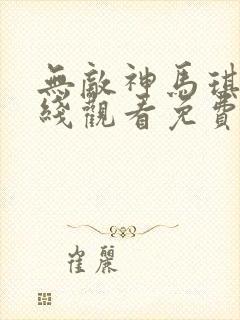 無敵神馬琪
綫觀看免費
崔麗